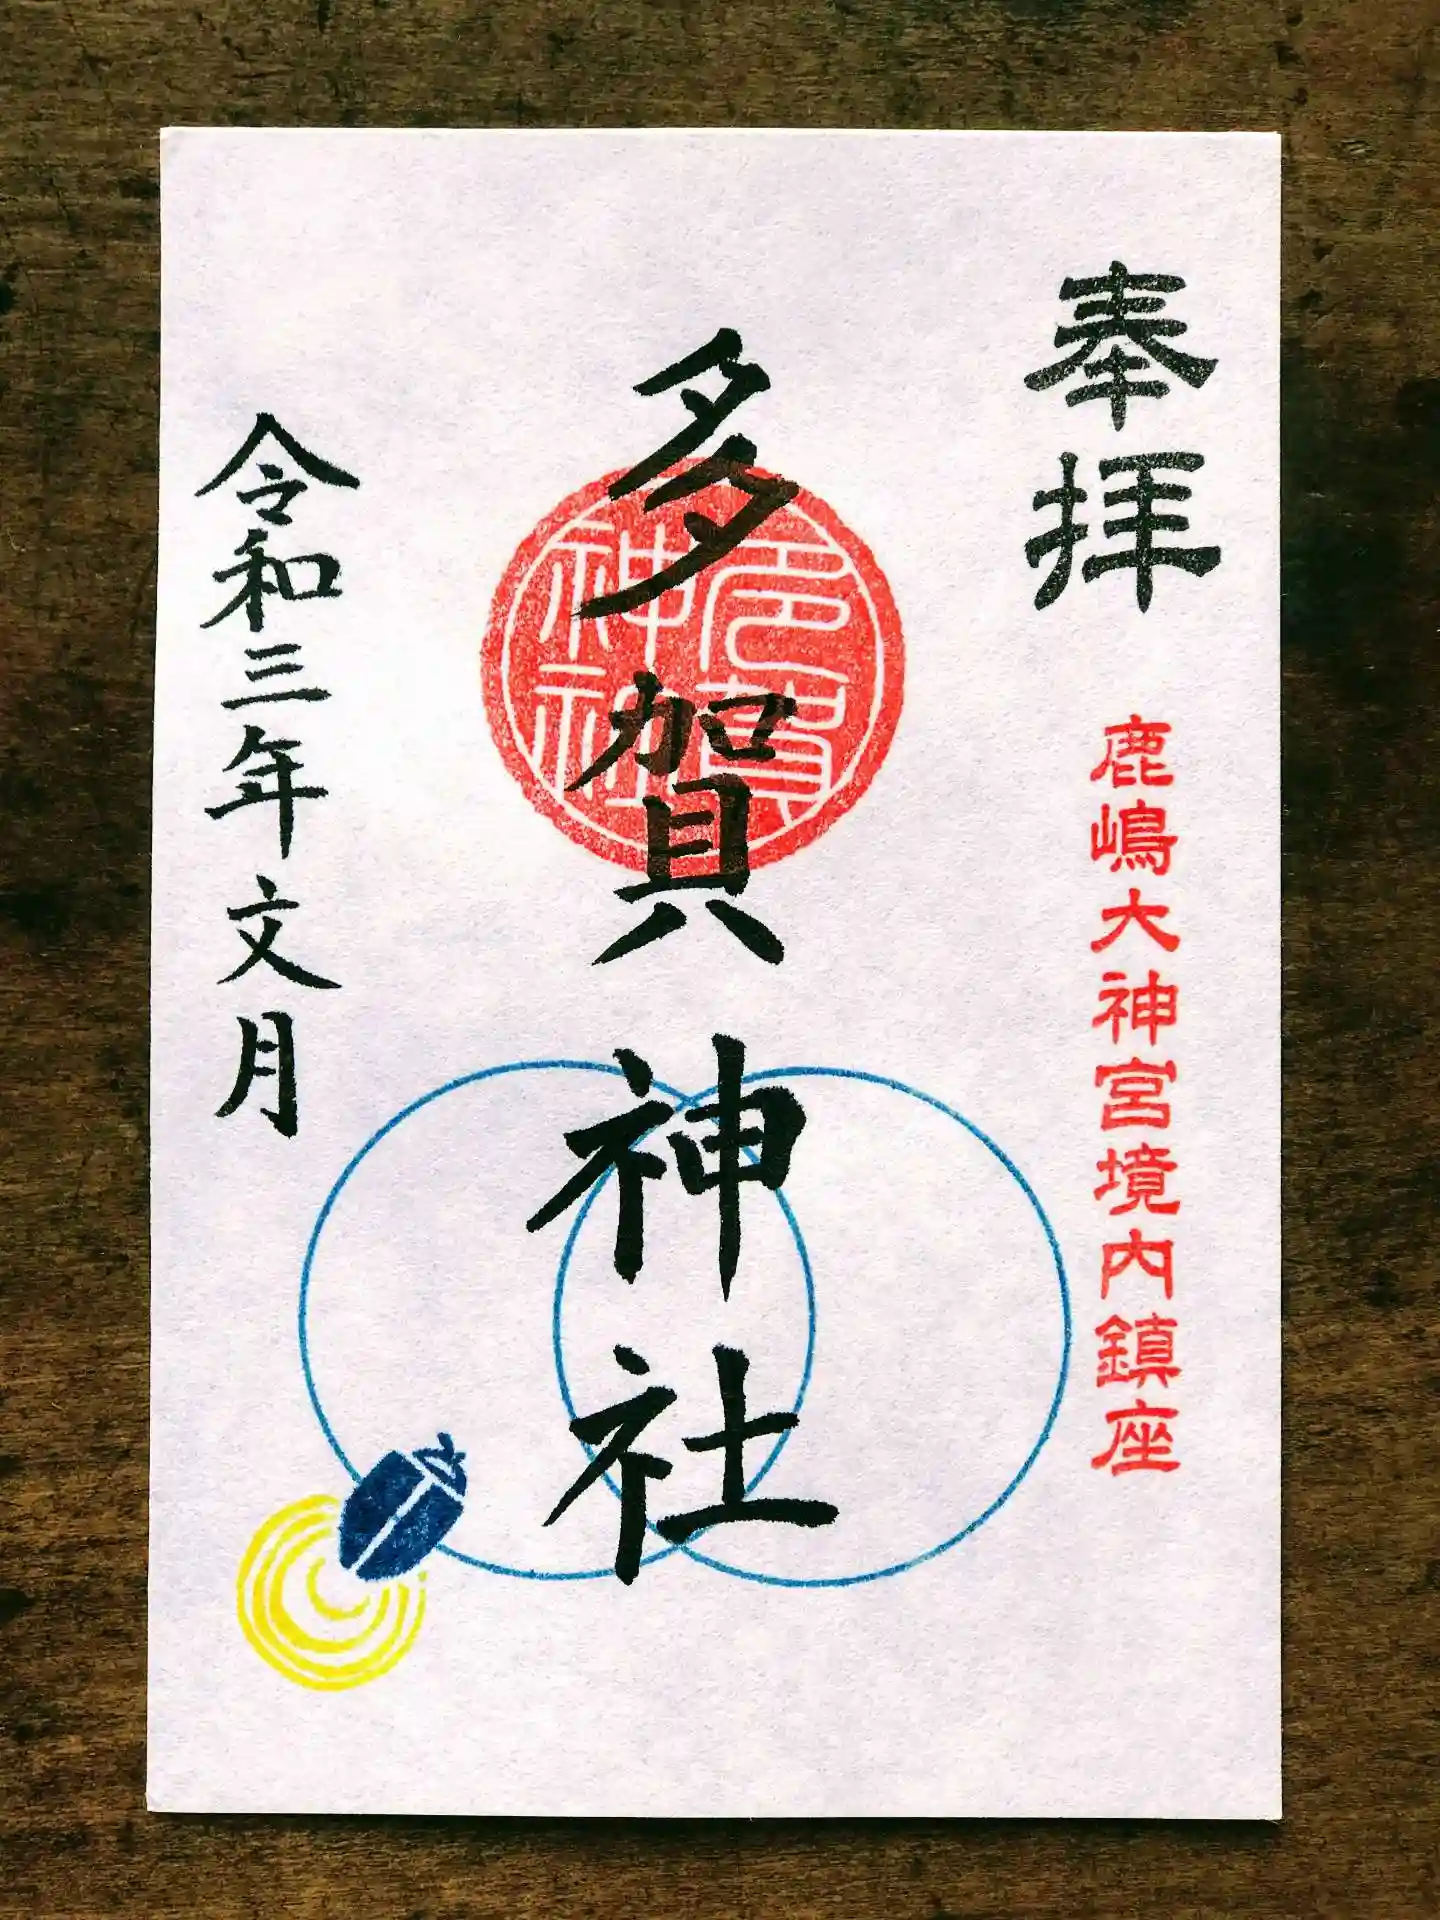 奉拝
鹿嶋大神宮境内鎮座
多賀神社
多賀
神社
令和三年文月